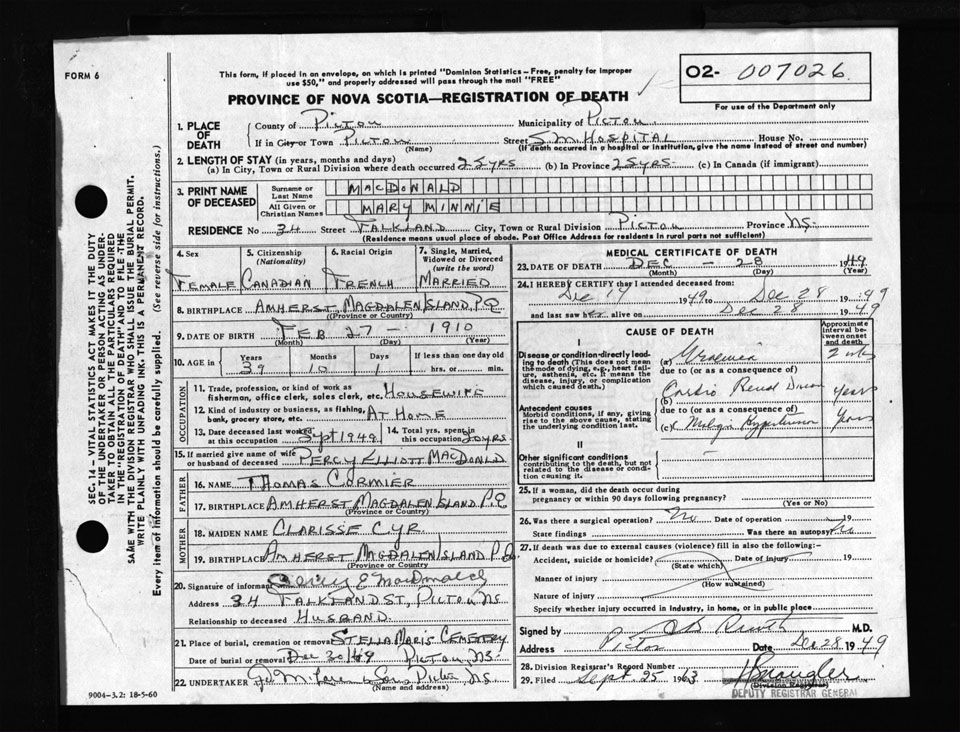 FORM 6
This form, if placed in an envelope, on which is printed "Dominion Statistics—Free, penalty for improper
use $50," and properly addressed will pass through the mail "FREE"
PROVINCE OF NOVA SCOTIA—REGISTRATION OF DEATH
O2- 007026
For use of the Department only
SEC. 14 — VITAL STATISTICS ACT MAKES IT THE DUTY
OF THE UNDERTAKER OR PERSON ACTING AS UNDER-
TAKER TO OBTAIN ALL THE PARTICULARS REQUIRED
IN THE "REGISTRATION OF DEATH" AND TO FILE THE
SAME WITH THE DIVISION REGISTRAR WHO SHALL ISSUE THE BURIAL PERMIT.
WRITE PLAINLY WITH UNFADING INK. THIS IS A PERMANENT RECORD.
Every item of information should be carefully supplied. (See reverse side for instructions.)
1. PLACE OF DEATH
County of Pictou Municipality of Pictou
If in City or Town Pictou Street S.M. HOSPITAL House No.
(Name) (If death occurred in a hospital or institution, give the name instead of street and number)
2. LENGTH OF STAY (in years, months and days)
(a) In City, Town or Rural Division where death occurred 25 yrs (b) In Province 25 yrs (c) In Canada (if immigrant)
3. PRINT NAME OF DECEASED
Surname or Last Name MACDONALD
All Given or Christian Names MARY MINNIE
RESIDENCE No 34 Street FALKLAND City, Town or Rural Division PICTOU Province NS.
(Residence means usual place of abode. Post Office Address for residents in rural parts not sufficient)
4. Sex 5. Citizenship (Nationality) 6. Racial Origin 7. Single, Married, Widowed or Divorced (write the word)
FEMALE CANADIAN FRENCH MARRIED
8. BIRTHPLACE AMHERST MAGDALEN ISLAND P.Q.
(Province or Country)
9. DATE OF BIRTH FEB 27 - 1910
(Month) (Day) (Year)
10. AGE in Years Months Days If less than one day old
39 10 1 hrs. or min.
OCCUPATION
11. Trade, profession, or kind of work as
fisherman, office clerk, sales clerk, etc. HOUSEWIFE
12. Kind of industry or business, as fishing,
bank, grocery store, etc. AT HOME
13. Date deceased last worked at this occupation Sept 1949 14. Total yrs. spent in this occupation 20 yrs
15. If married give name of wife
or husband of deceased PERCY ELLIOTT MACDONALD
FATHER
16. NAME THOMAS CORMIER
17. BIRTHPLACE AMHERST MAGDALEN ISLAND P.Q.
(Province or Country)
MOTHER
18. MAIDEN NAME CLARISSE CYR
19. BIRTHPLACE AMHERST MAGDALEN ISLAND P.Q.
(Province or Country
20. Signature of informant Percy E MacDonald
Address 34 FALKLAND ST, PICTOU NS
Relationship to deceased HUSBAND
21. Place of burial, cremation or removal STELLA MARIS CEMETERY
Date of burial or removal Dec 30/49 PICTOU, NS.
22. UNDERTAKER & Sons Pictou, N.S.
(Name and address)
9004—3.2: 18-5-60
MEDICAL CERTIFICATE OF DEATH
23. DATE OF DEATH DEC - 28 1949
(Month) (Day) (Year)
24. I HEREBY CERTIFY that I attended deceased from:
Dec 14 1949 to Dec 28 1949
and last saw her alive on Dec 28 1949
CAUSE OF DEATH
Approximate interval between onset and death
I
Disease or condition directly leading to death (This does not mean the mode of dying, e.g., heart failure, asthenia, etc. It means the disease, injury, or complication which caused death.)
(a) Uraemia 2 wks
due to (or as a consequence of)
Antecedent causes
Morbid conditions, if any, giving rise to the above cause, stating the underlying condition last.
(b) Cardio Renal Disease years
due to (or as a consequence of)
(c) Hypertension years
II
Other significant conditions
contributing to the death, but not related to the disease or condition causing it.
25. If a woman, did the death occur during
pregnancy or within 90 days following pregnancy?
(Yes or No)
26. Was there a surgical operation? No Date of operation 19
State findings Was there an autopsy? No
27. If death was due to external causes (violence) fill in also the following:—
Accident, suicide or homicide? Date of injury 19
(State which)
Manner of injury
(How sustained)
Nature of injury
Specify whether injury occurred in Industry, in home, or in public place
Signed by M.D.
Address Pictou Date Dec 28 1949
28. Division Registrar's Record Number
29. Filed Sept. 25 1963
(Division Registrar)
DEPUTY REGISTRAR GENERAL